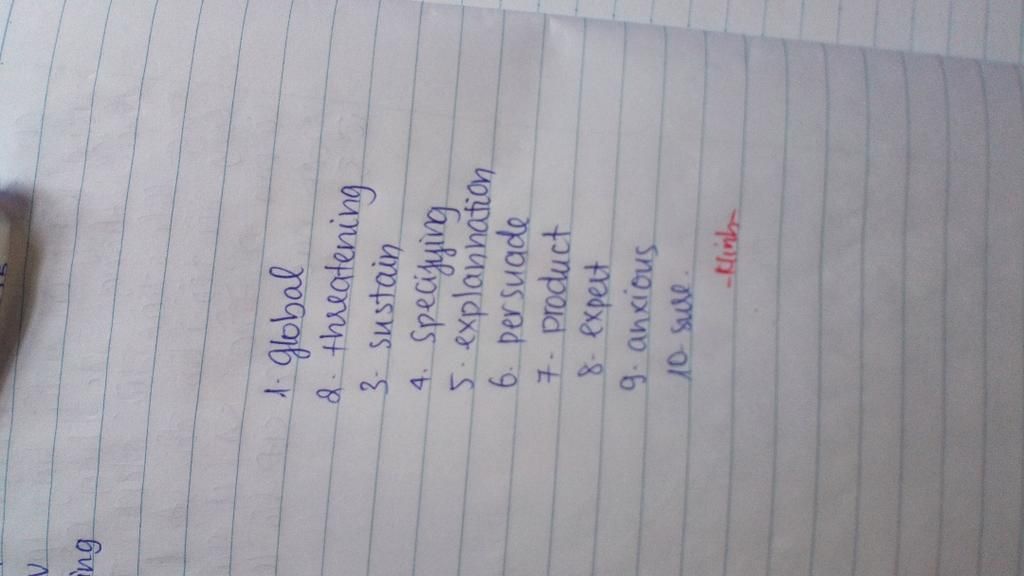 1. global
2. threatening
3. sustain
4. specifying
5. explannation
6. persuade
7. product
8. expert
9. anxious
10. sure.
-Minh-
ing